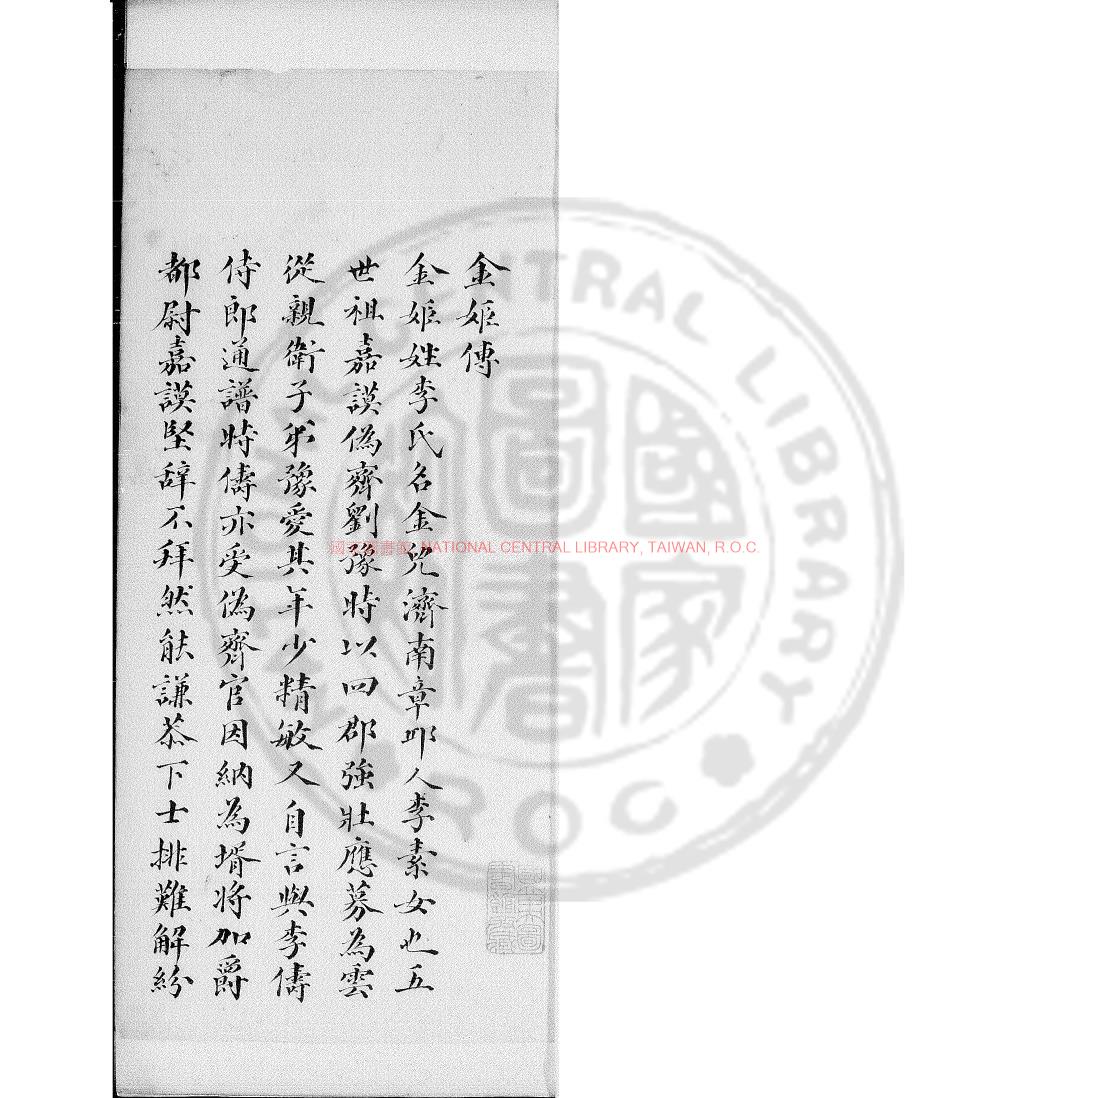 金姬傳
金姬姓李氏名金兒濟南章邱人李素女也五
世祖嘉謨偽齊劉豫時以四郡強壯應募為雲
從親衛子弟豫愛其年少精敏又自言與李儔
侍郎通譜時儔亦受偽齊官因納為壻將加爵
都尉嘉謨堅辞不拜然能謙恭下士排難解紛
國家圖書館 NATIONAL CENTRAL LIBRARY, TAIWAN, R.O.C.
NATIONAL CENTRAL LIBRARY
R.O.C.
國家圖書